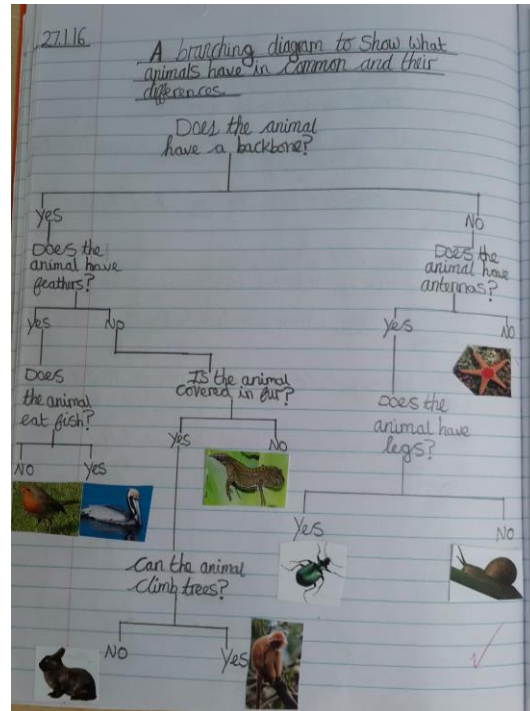 27.1.16
A branching diagram to Show What
animals have in Common and their
differences.
Does the animal
have a backbone?
Yes
No
Does the
animal have
feathers?
Does the
animal have
antennas?
Yes
No
Yes
No
Does
the animal
eat fish?
Is the animal
covered in fur?
Does the
animal have
legs?
NO
Yes
Yes
No
Yes
No
Can the animal
climb trees?
NO
Yes